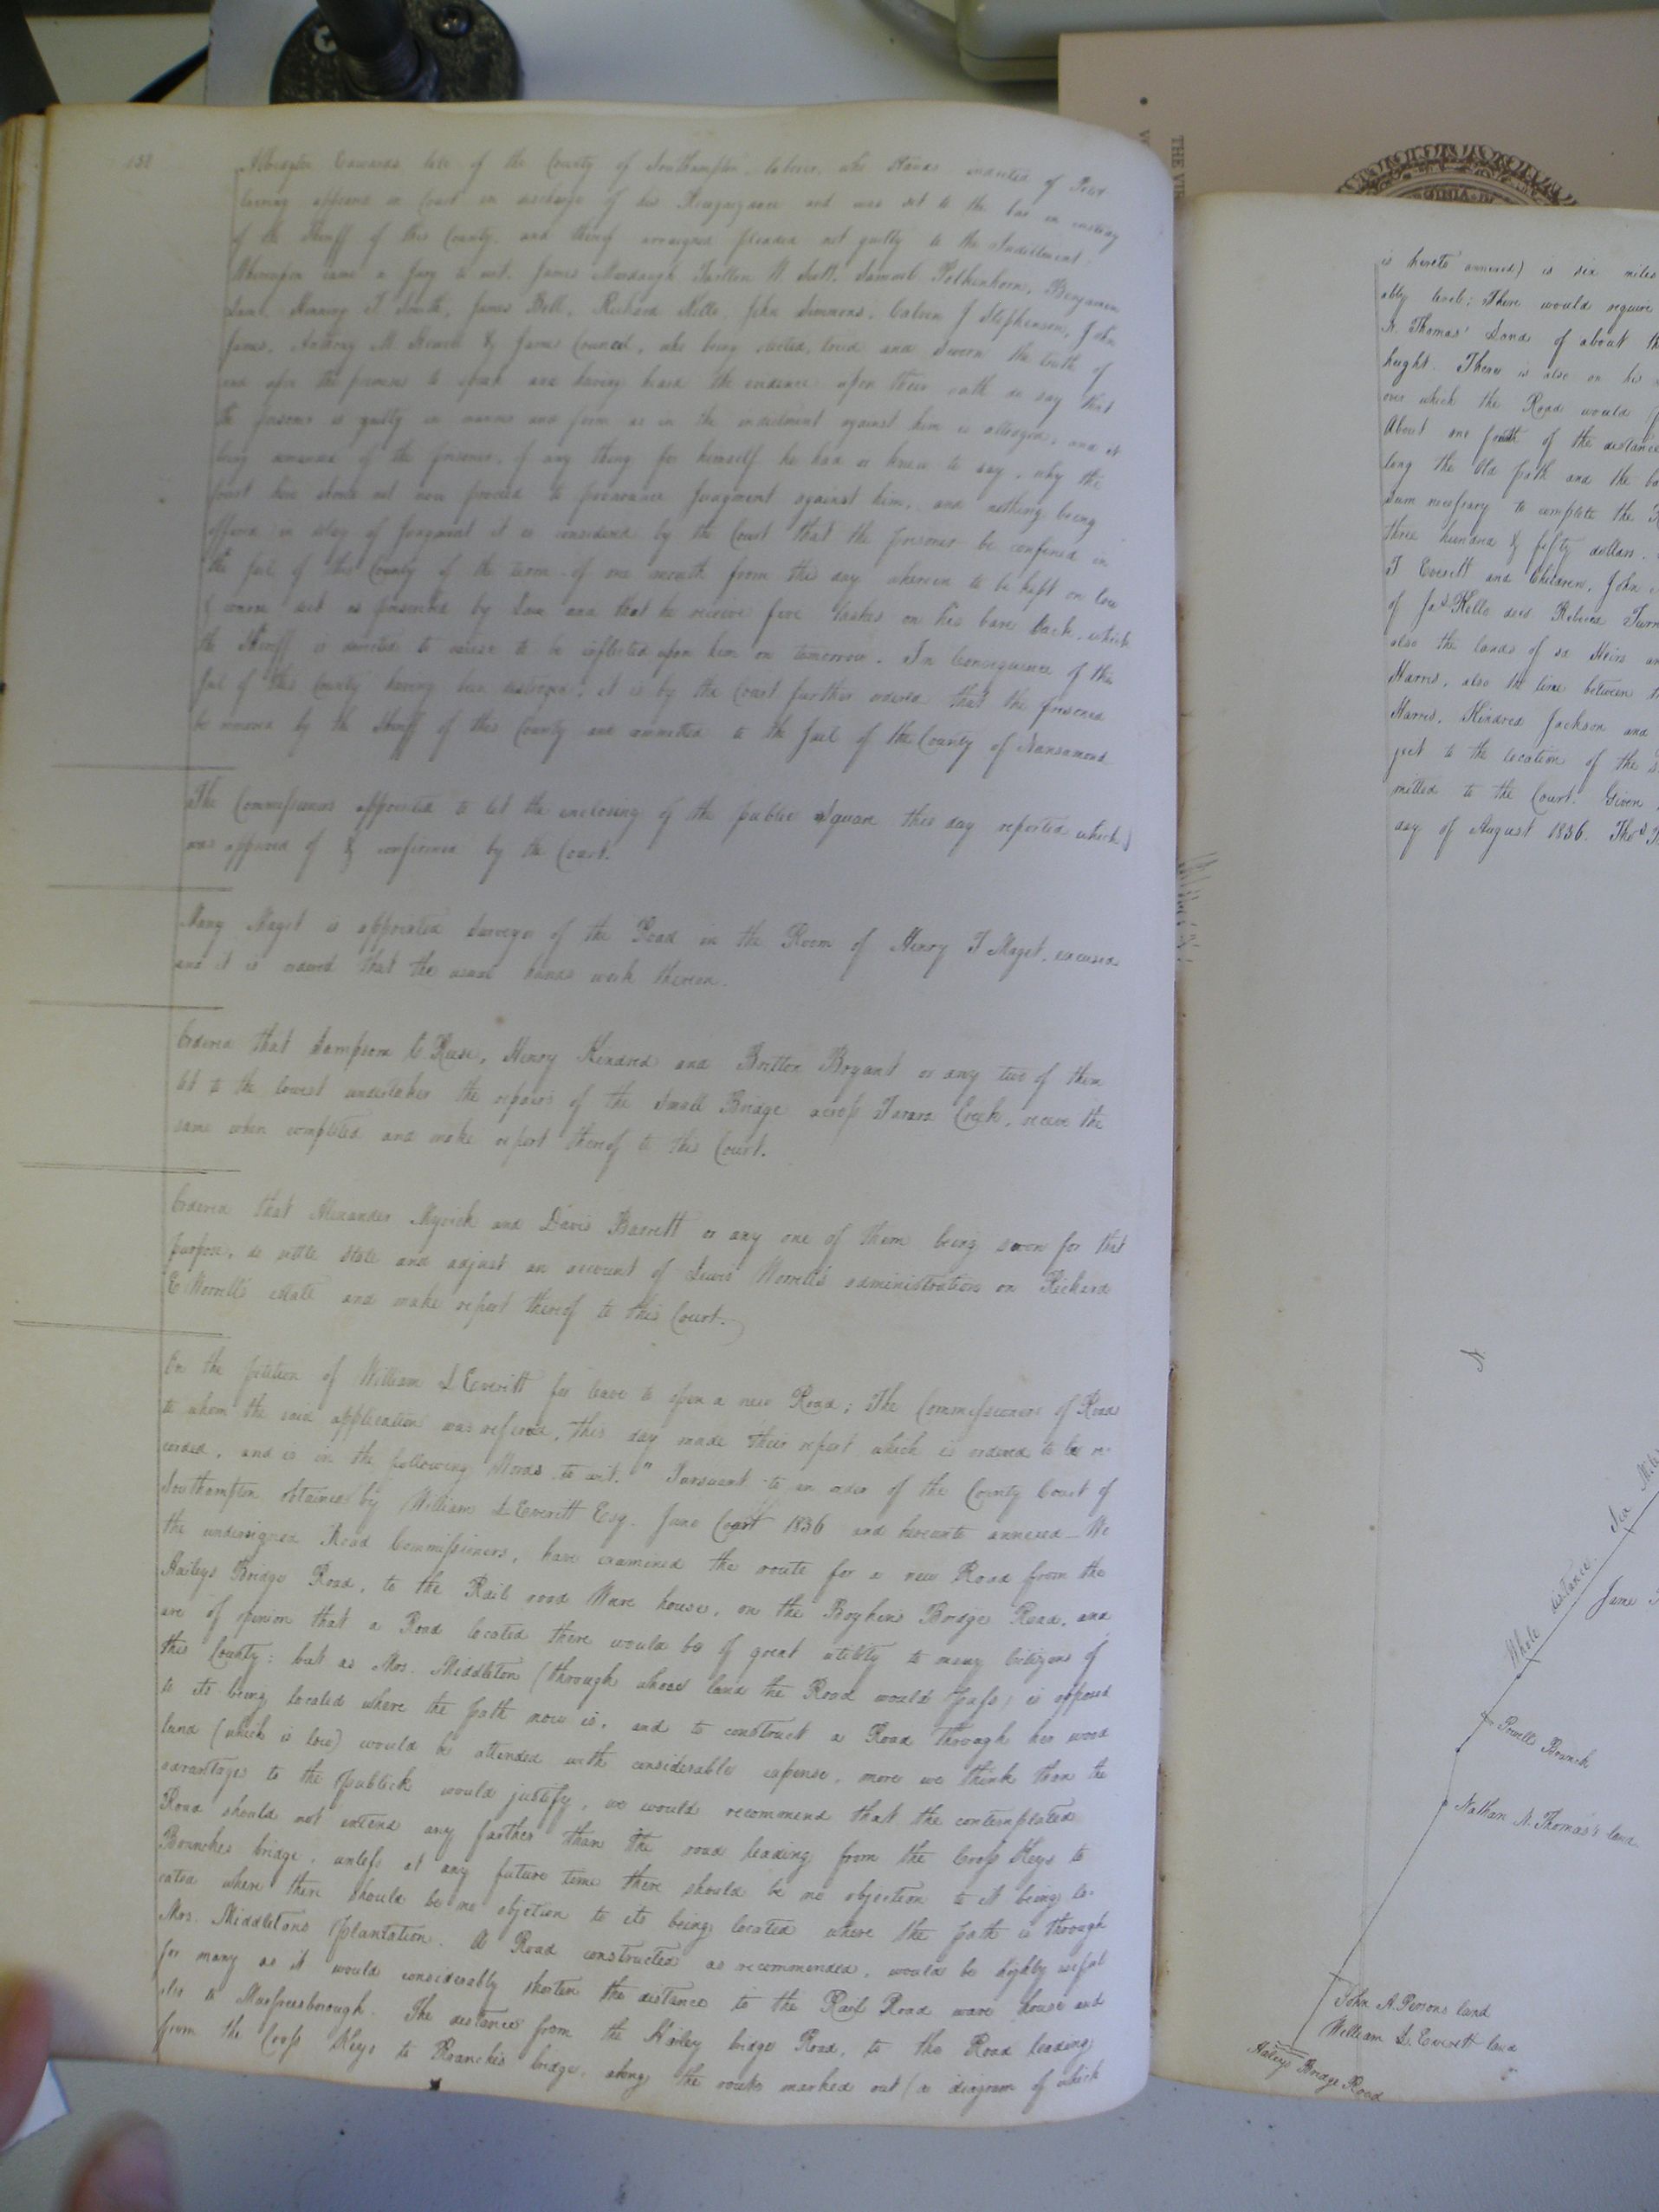 Edwards late of the County of Southampton, laborer, who stands indicted of Petit
larceny appears in Court in discharge of his Recognizance and was set to the bar in custody
of the Sheriff of this County, and thereof arraigned pleaded not guilty to the Indictment.
Whereupon came a Jury to wit. James Murdaugh W Scott, Samuel Benjamin
James Bell, Richard Kello, John Simmons, Calvin J Stephenson, John
James, Anthony M. & James Council, who being elected, tried and sworn the truth of
and upon the premises to speak and having heard the evidence upon their oath do say that
the prisoner is guilty in manner and form as in the indictment against him is alledged; and it
being demanded of the prisoner, if any thing for himself he had or knew to say, why the
Court here should not now proceed to pronounce Judgment against him, and nothing being
offered in delay of Judgment it is considered by the Court that the prisoner be confined in
the Jail of this County of the term of one month from this day wherein to be kept on low
& coarse diet as prescribed by Law and that he receive five lashes on his bare back, which
the Sheriff is directed to cause to be inflicted upon him on tomorrow. In Consequence of the
Jail of this County having been destroyed; it is by the Court further ordered that the prisoner
be removed by the Sheriff of this County and committed to the Jail of the County of Nansamond
The Commissioners appointed to let the enclosing of the public Square this day reported which
was approved of & confirmed by the Court.
Maget is appointed Surveyor of the Road in the Room of Henry T Maget, excused
and it is ordered that the usual hands work thereon.
Ordered that Sampson C. Reese, Henry Kindred and Britton Bryant or any two of them
let to the lowest undertaker the repairs of the Small Bridge across Tarara Creek, receive the
same when completed and make report thereof to this Court.
Ordered that Alexander Myrick and Davis Barrett or any one of them being sworn for that
purpose, do settle state and adjust an account of Lewis Worrell's administration on Richard
E Worrell's estate and make report thereof to this Court.
On the petition of William L Everitt for leave to open a new Road; The Commissioners of Roads
to whom the said application was refered, this day made their report which is ordered to be re-
corded, and is in the following Words to wit. "Pursuant to an order of the County Court of
Southampton obtained by William L Everett Esq. June Court 1836 and hereunto annexed_ We
the undersigned Road Commissioners, have examined the route for a new Road from the
Haileys Bridge Road, to the Rail road Ware house, on the Boykins Bridge Road, and
are of opinion that a Road located there would be of great utility to many Citizens of
this County: but as Mrs. Middleton (through whose land the Road would pass) is opposed
to its being located where the path now is, and to construct a Road through her wood
land (which is low) would be attended with considerable expense, more we think than the
advantage to the publick would justify, we would recommend that the contemplated
Road should not extend any farther than the road leading from the Cross Keys to
Branches bridge, unless at any future time there should be no objection to it being lo-
cated where there should be no objection to its being located where the path is through
Mrs. Middletons plantation. A Road constructed as recommended, would be highly useful
for many as it would considerably shorten the distance to the Rail Road ware house and
also to Murfreesborough. The distance from the Hailey bridge Road, to the Road leading
from the Cross Keys to Branche's bridge, along the route marked out (a diagram of which
is hereto annexed) is six miles
ably level: There would require
N. Thomas' Land of about
height. There is also on his
over which the Road would
About one fourth of the distance
long the Old path and the
sum necessary to complete the
three hundred & fifty dollars.
T Everett and Children, John
of Jas Kello decd. Rebecca
also the lands of sd Heirs
Harris, also the line between
Harris, Kindred Jackson and
ject to the location of the
mitted to the Court. Given
day of August 1836. Thos
N
Whole distance Six Miles
Powells Branch
Nathan N. Thomas's land
John A. Persons land
William L. Everett land
Haleys Bridge Road